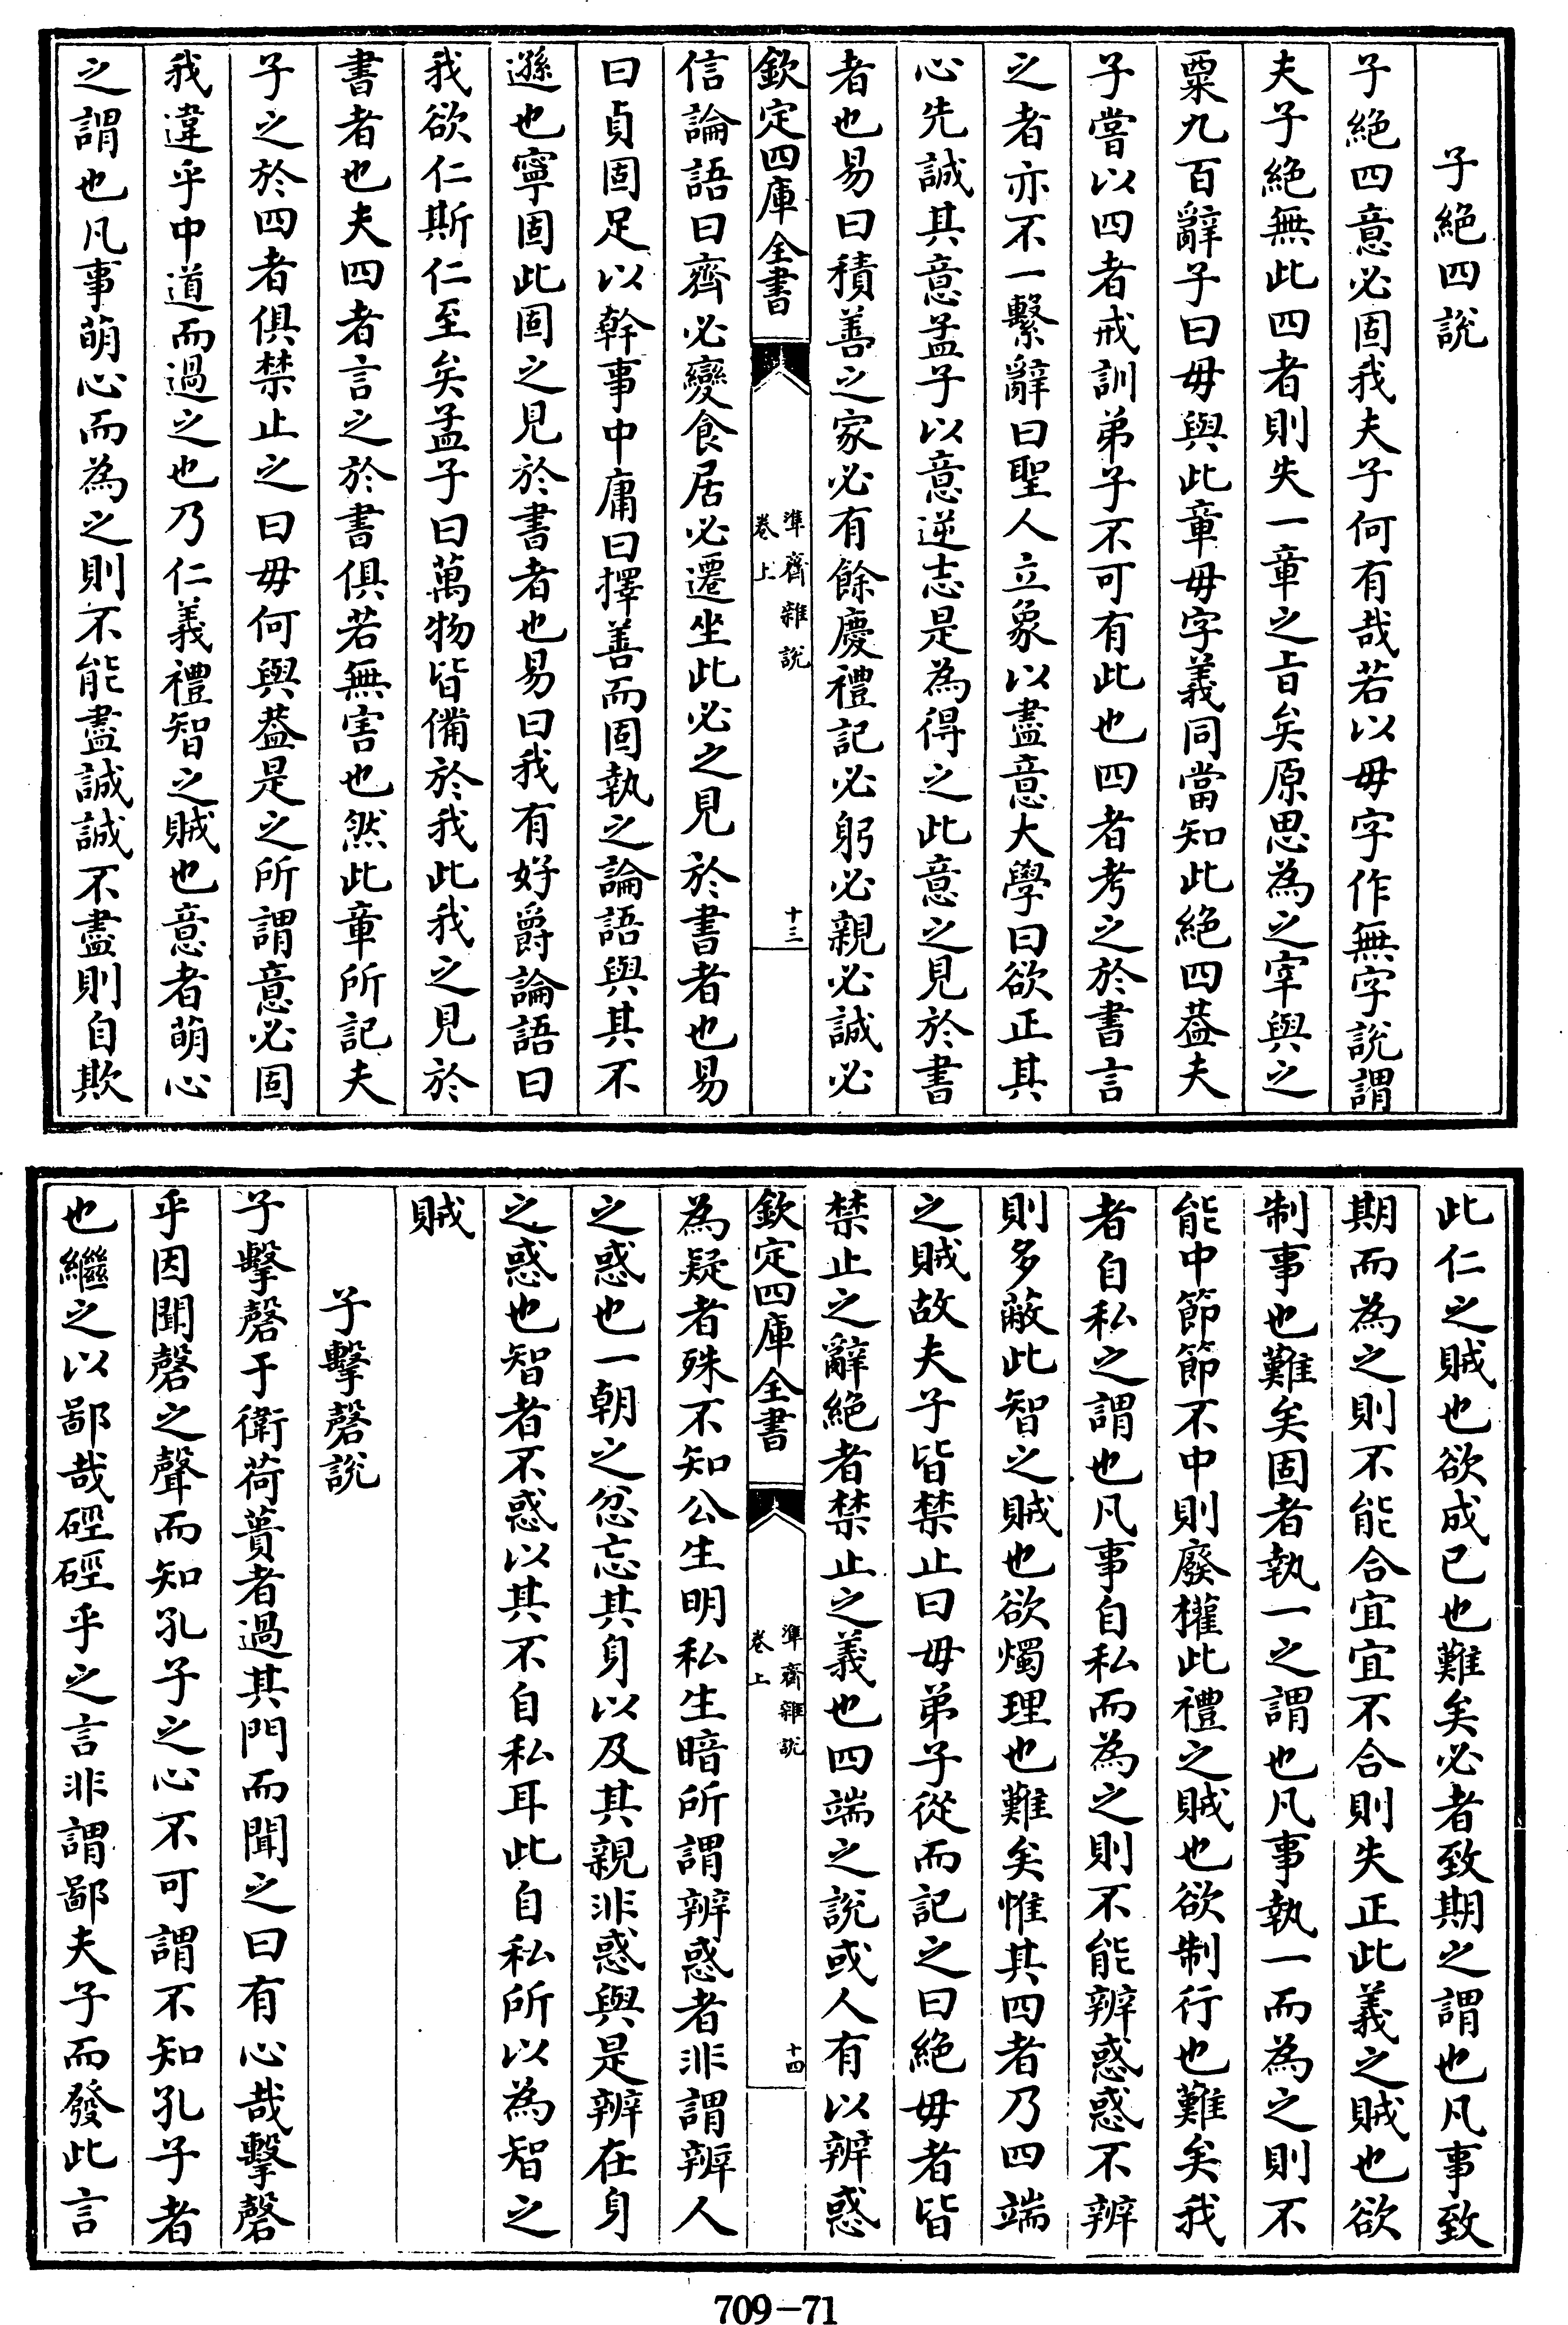 子絶四說
子絶四意必固我夫子何有哉若以毋字作無字說謂
夫子絶無此四者則失一章之旨矣原思為之宰與之
粟九百辭子曰毋與此章毋字義同當知此絶四葢夫
子嘗以四者戒訓弟子不可有此也四者考之於書言
之者亦不一繫辭曰聖人立象以盡意大學曰欲正其
心先誠其意孟子以意逆志是為得之此意之見於書
者也易曰積善之家必有餘慶禮記必躬必親必誠必
欽定四庫全書
準齋雜說
卷上
十三
信論語曰齊必變食居必遷坐此必之見於書者也易
曰貞固足以幹事中庸曰擇善而固執之論語與其不
遜也寧固此固之見於書者也易曰我有好爵論語曰
我欲仁斯仁至矣孟子曰萬物皆備於我此我之見於
書者也夫四者言之於書俱若無害也然此章所記夫
子之於四者俱禁止之曰毋何與葢是之所謂意必固
我違乎中道而過之也乃仁義禮智之賊也意者萌心
之謂也凡事萌心而為之則不能盡誠誠不盡則自欺
此仁之賊也欲成已也難矣必者致期之謂也凡事致
期而為之則不能合宜宜不合則失正此義之賊也欲
制事也難矣固者執一之謂也凡事執一而為之則不
能中節節不中則廢權此禮之賊也欲制行也難矣我
者自私之謂也凡事自私而為之則不能辨惑惑不辨
則多蔽此智之賊也欲燭理也難矣惟其四者乃四端
之賊故夫子皆禁止曰毋弟子從而記之曰絶毋者皆
禁止之辭絶者禁止之義也四端之說或人有以辨惑
欽定四庫全書
準齋雜說
卷上
十四
為疑者殊不知公生明私生暗所謂辨惑者非謂辨人
之惑也一朝之忿忘其身以及其親非惑與是辨在身
之惑也智者不惑以其不自私耳此自私所以為智之
賊
子擊磬說
子擊磬于衛荷蕢者過其門而聞之曰有心哉擊磬
乎因聞磬之聲而知孔子之心不可謂不知孔子者
也繼之以鄙哉硜硜乎之言非謂鄙夫子而發此言
709-71